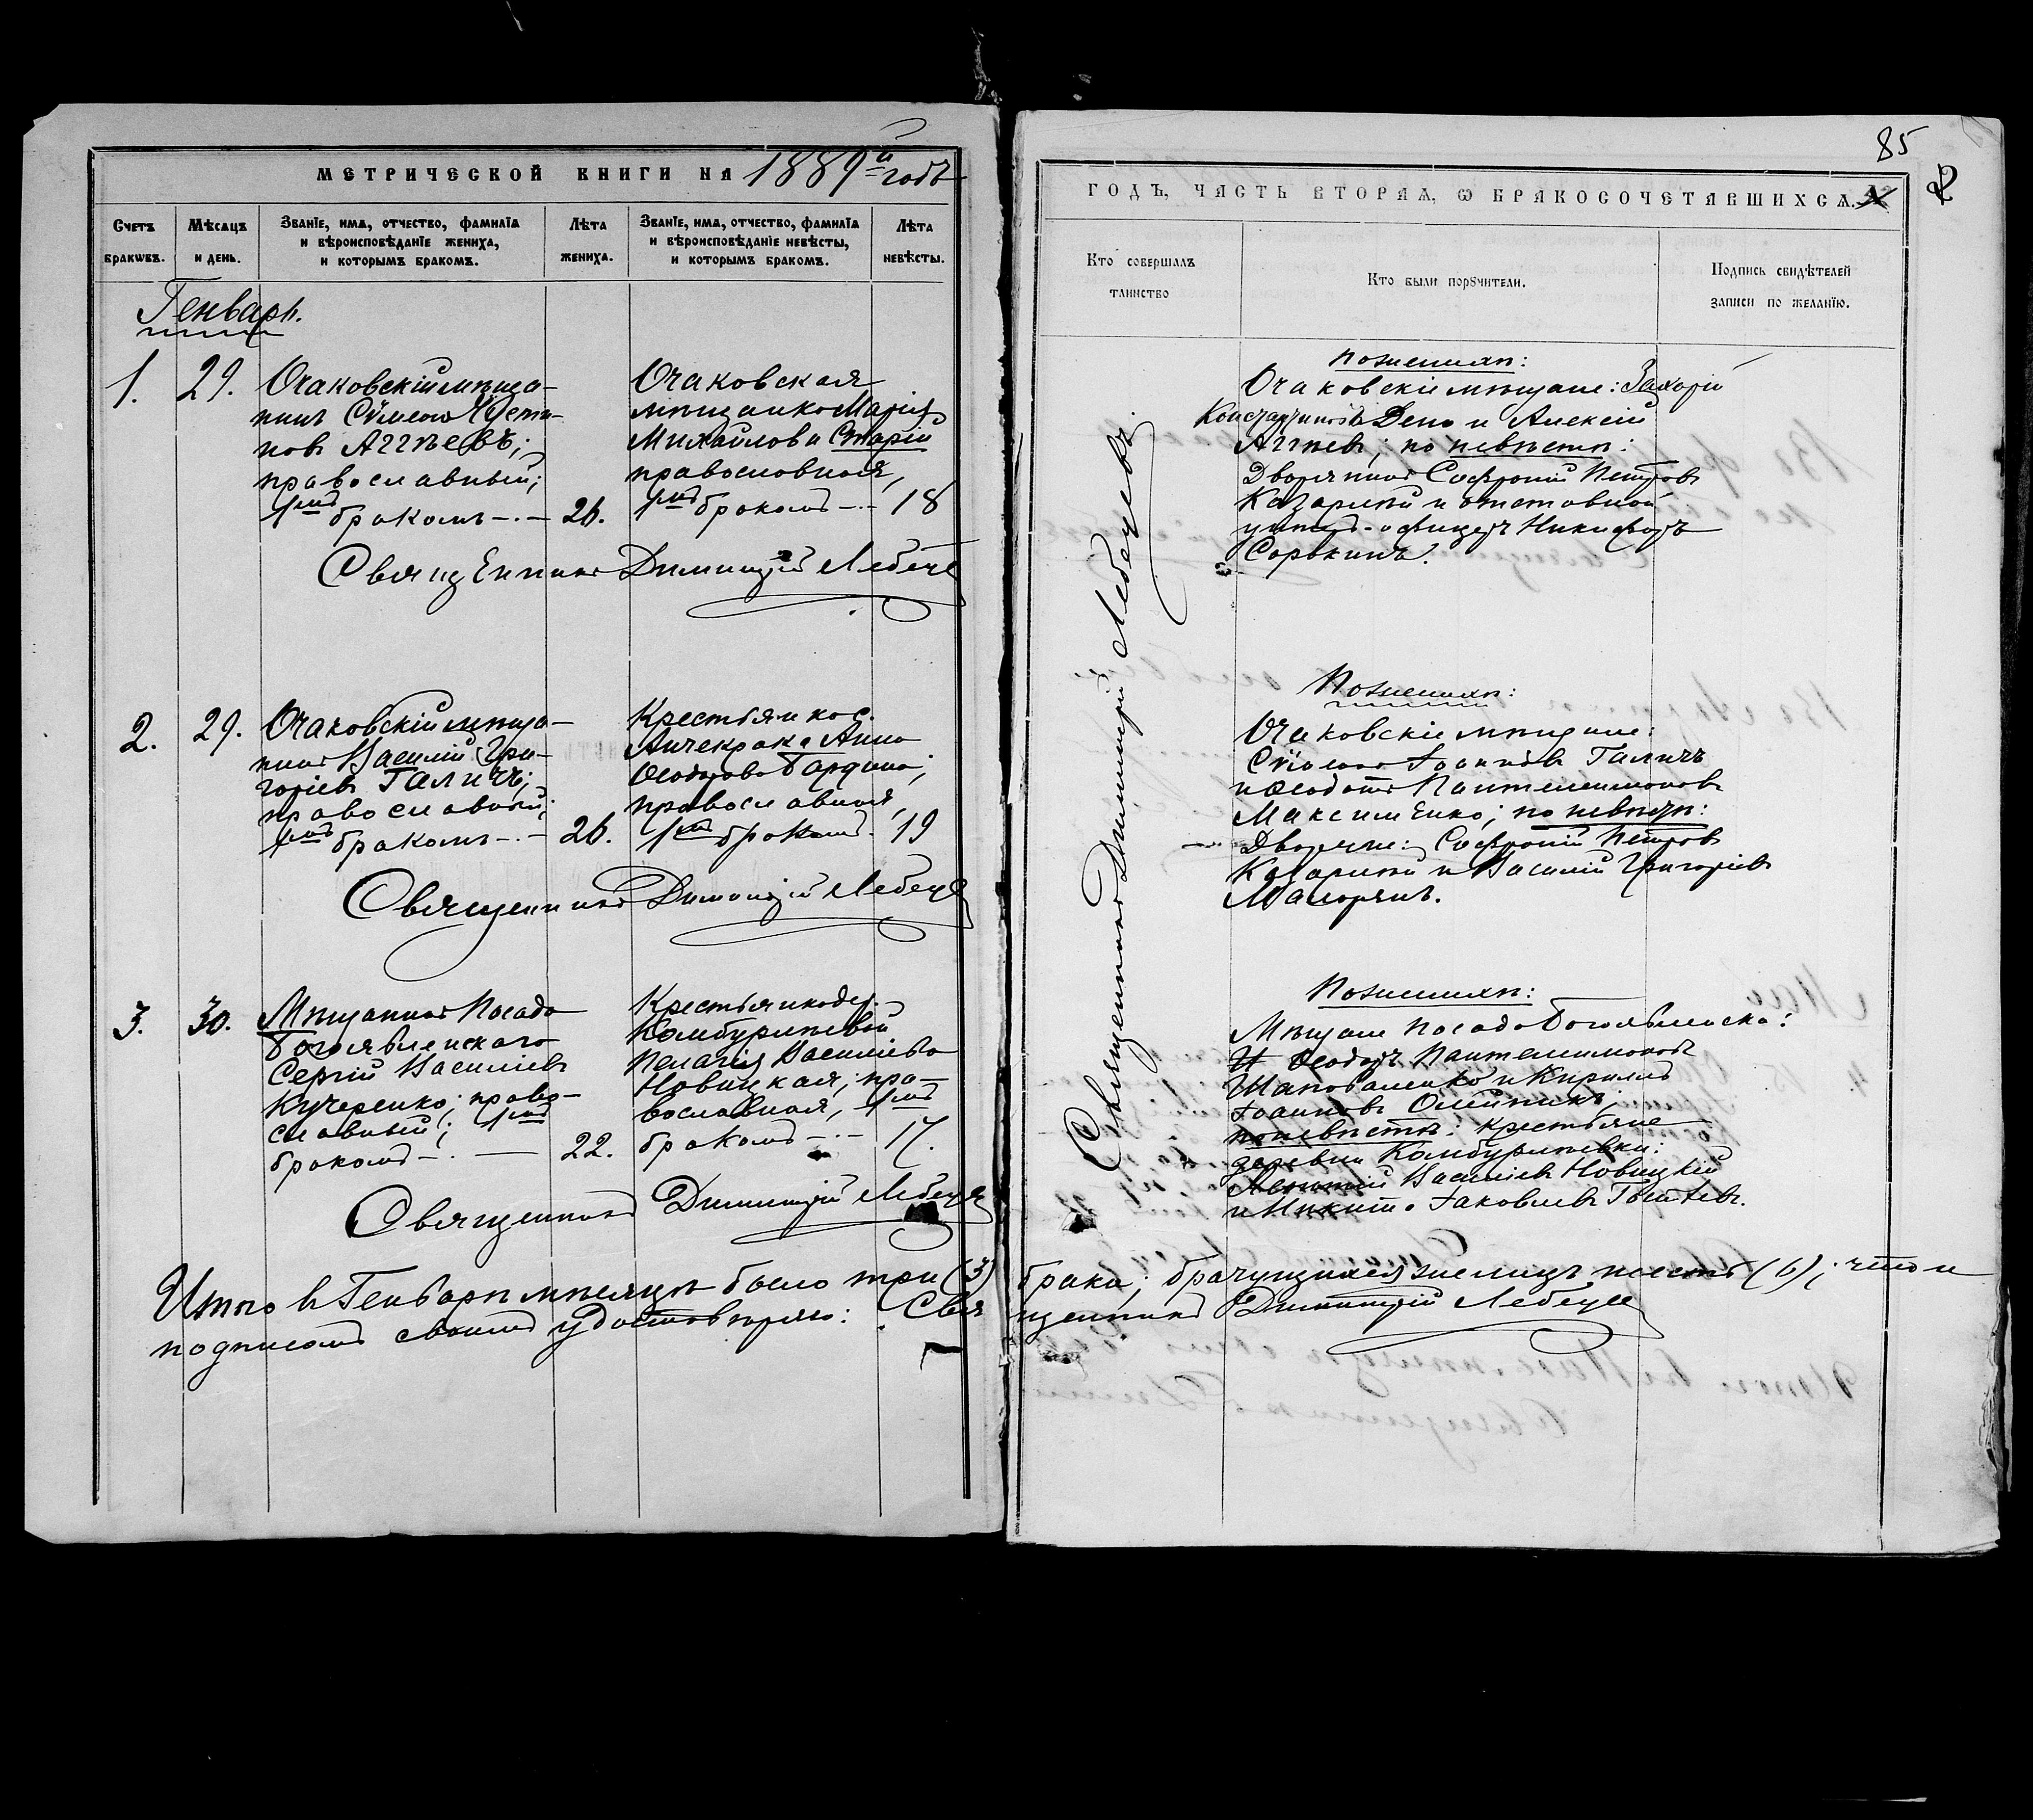 МЕТРИЧЕСКОЙ КНИГИ НА 1889й годъ
Счетъ браковъ.
Мѣсяцъ и день.
Званіе, имя, отчество, фамилія и вѣроисповѣданіе жениха, и которымъ бракомъ.
Лѣта жениха.
Званіе, имя, отчество, фамилія и вѣроисповѣданіе невѣсты, и которымъ бракомъ.
Лѣта невѣсты.
Генварь.
1.
29.
Очаковскій мѣща-
нинъ Сѵмеонъ
новъ Аггѣевъ;
православный;
1мъ бракомъ
26.
Очаковская
мѣщанка Марія
Михайлова Старій
православная,
1мъ бракомъ
18
Священникъ Димитрій Лебедев
2.
29.
Очаковскій мѣща-
нинъ Василій Гри-
горіевъ Галичъ;
православный;
1мъ бракомъ
26.
Крестьянка с.
Анчекрака Анна
Ѳеодорова
православная,
1мъ бракомъ
19
Священникъ Димитрій Лебедев
3.
30.
Мѣщанинъ Посада
Богоявленскаго
Сергій Василіевъ
Кучеренко; право-
славный; 1мъ
бракомъ
22.
Крестьянка дер.
Камбуріевой
Пелагія Василіева
Новицкая; пра-
вославная, 1мъ
бракомъ
17.
Священникъ Димитрій Лебедев
Итого въ Генварѣ мѣсяцѣ было три (3)
подписомъ своимъ удостовѣряю: Свя
85
2
ГОДЪ, ЧАСТЬ ВТОРАЯ, Ѡ БРАКОСОЧЕТАВШИХСЯ.
Кто совершалъ таинство
Кто были поручители.
Подпись свидѣтелей записи по желанію.
Священникъ Димитрій Лебедевъ
По женихѣ:
Очаковскіе мѣщане: Захарій
Константиновъ Дена и Алексій
Аггѣевъ; по невѣстѣ:
Дворянинъ Софроній Петровъ
Казариный и отставной
унтеръ-офицеръ Никифоръ
Сорокинъ.
По женихѣ:
Очаковскіе мѣщане:
Сѵмеонъ Іоанновъ Галичъ
и Ѳеодотъ Пантелеимоновъ
Максименко; по невѣстѣ:
Дворяне: Софроній Петровъ
Казариный и Василій Григоріевъ
По женихѣ:
Мѣщане посада Богоявленска:
Ѳеодоръ Пантелеимоновъ
Шаповаленко и Кириллъ
Іоанновъ Олейникъ;
по невѣстѣ: крестьяне
деревни Камбуріевки:
Василіевъ Новицкій
и Никита Іаковлевъ
брака; брачущихся же лицъ шесть (6); что и
щенникъ Димитрій Лебедев